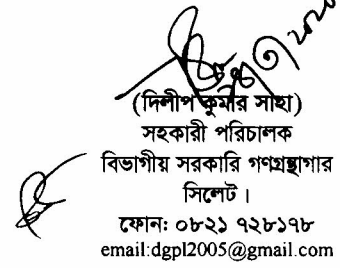 (দিলীপ কুমার সাহা)
সহকারী পরিচালক
বিভাগীয় সরকারি গণগ্রন্থাগার
সিলেট ।
ফোন: ০৮২১ ৭২৮১৭৮
email:dgpl2005@gmail.com